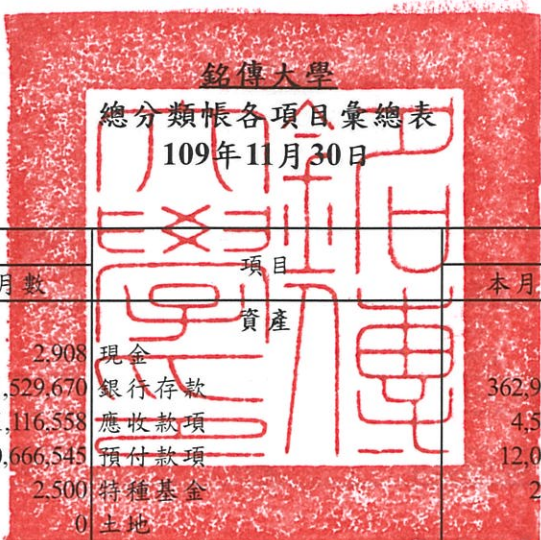 銘傳大學
總分類帳各項目彙總表
109年11月30日
月數 項目 本月
資產
2,908 現金
,529,670 銀行存款 362,9
,116,558 應收款項 4,5
,666,545 預付款項 12,0
2,500 特種基金 2
0 土地
銘傳大學